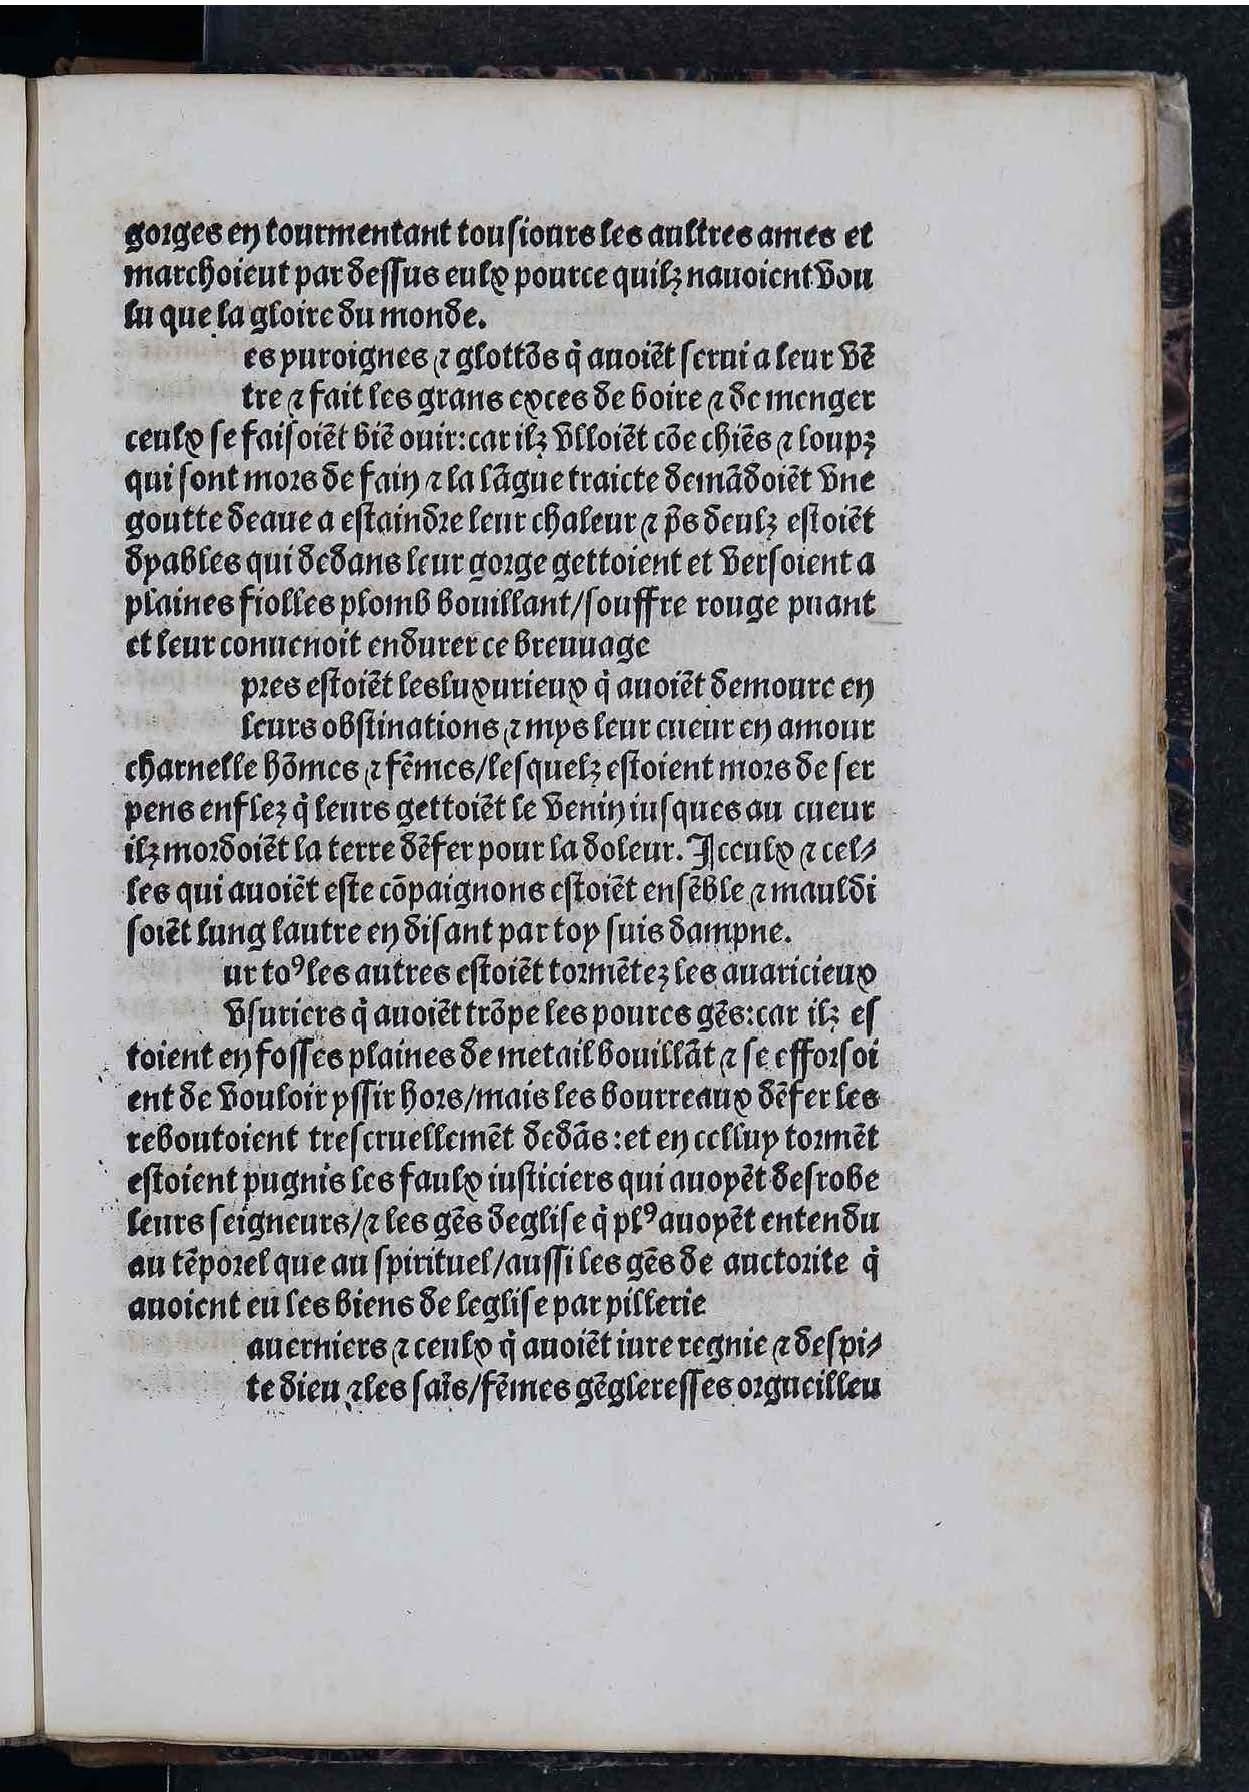 gorges en tourmentant tousiours les aultres ames et
marchoieut par dessus eulx pource quilz nauoient vou
lu que la gloire du monde.
es yuroignes ⁊ glottõs q̃ auoiẽt serui a leur vẽ
tre ⁊ fait les grans exces de boire ⁊ de menger
ceulx se faisoiẽt biẽ ouir:car ilz vlloiẽt cõe chiẽs ⁊ loupz
qui sont mors de fain ⁊ la lãgue traicte demãdoiẽt vne
goutte deaue a estaindre leur chaleur ⁊ p̃s deulz estoiẽt
dyables qui dedans leur gorge gettoient et versoient a
plaines fiolles plomb bouillant/souffre rouge puant
et leur conuenoit endurer ce breuuage
pres estoiẽt les luxurieux q̃ auoiẽt demoure en
leurs obstinations ⁊ mys leur cueur en amour
charnelle hõmes ⁊ fẽmes/lesquelz estoient mors de ser
pens enflez q̃ leurs gettoiẽt le venin iusques au cueur
ilz mordoiẽt la terre dẽfer pour la doleur. Iceulx ⁊ cel⸗
les qui auoiẽt este cõpaignons estoiẽt ensẽble ⁊ mauldi
soiẽt lung lautre en disant par toy suis dampne.
ur toꝰ les autres estoiẽt tormẽtez les auaricieux
vsuriers q̃ auoiẽt trõpe les poures gẽs:car ilz es
toient en fosses plaines de metail bouillãt ⁊ se efforsoi
ent de vouloir yssir hors/mais les bourreaux dẽfer les
reboutoient trescruellemẽt dedãs:et en celluy tormẽt
estoient pugnis les faulx iusticiers qui auoyẽt desrobe
leurs seigneurs/⁊ les gẽs deglise q̃ plꝰ auoyẽt entendu
au tẽporel que au spirituel/aussi les gẽs de auctorite q̃
auoient eu les biens de leglise par pillerie
auerniers ⁊ ceulx q̃ auoiẽt iure regnie ⁊ despi⸗
te dieu ⁊ les saĩs/fẽmes gẽgleresses orgueilleu